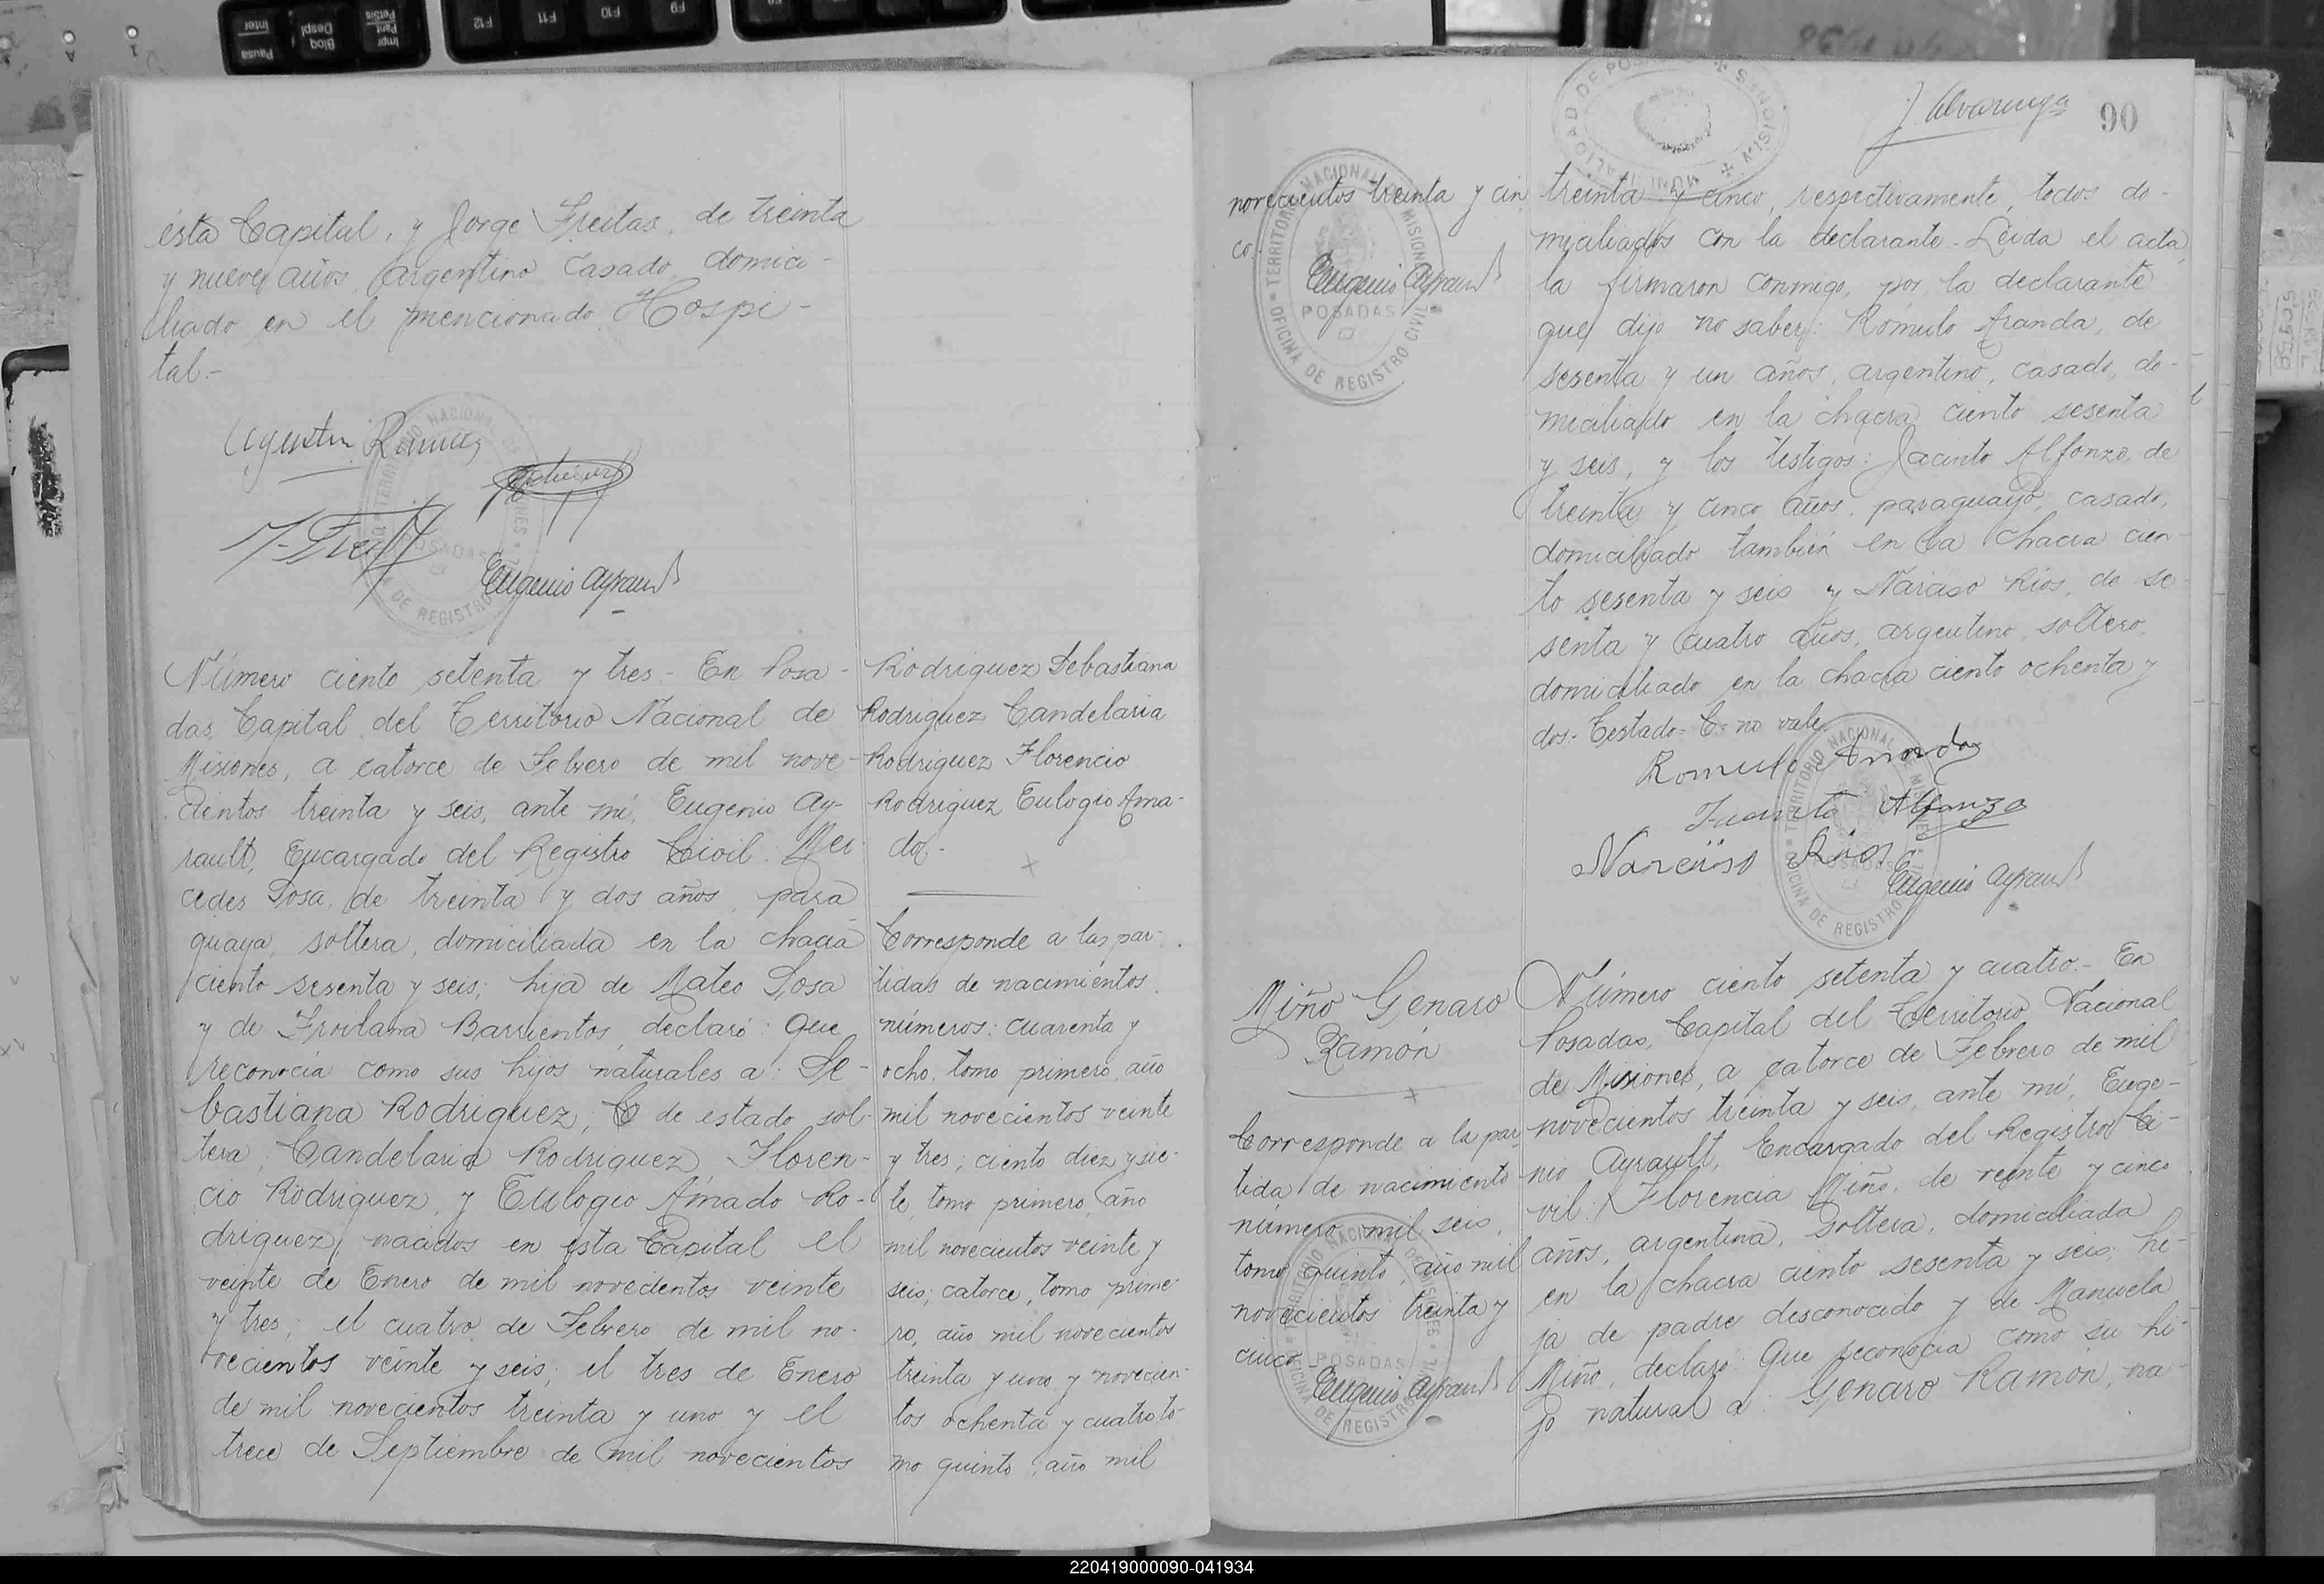 ésta Capital, y Jorge Freitas, de treinta
y nueve años, argentino casado, domici-
liado en el mencionado Hospi-
tal.-
Eugenio Ayrault
Número ciento setenta y tres.- En Posa-
das, Capital del Territorio Nacional de
Misiones, a catorce de Febrero de mil nove-
cientos treinta y seis, ante mí, Eugenio Ay-
rault, Encargado del Registro Civil: Mer-
cedes Sosa, de treinta y dos años, para
guaya, soltera, domiciliada en la chacra
ciento sesenta y seis; hija de Mateo Sosa
y de Froilana Barrientos, declaró: Que
reconocía como sus hijos naturales a: Se-
bastiana Rodriguez, C de estado sol-
tera; Candelaria Rodriguez, Floren-
cio Rodriguez, y Eulogio Amado Ro-
driguez, nacidos en esta Capital el
veinte de Enero de mil novecientos veinte
y tres; el cuatro de Febrero de mil no-
vecientos veinte y seis; el tres de Enero
de mil novecientos treinta y uno y el
trece de Septiembre de mil novecientos
Rodriguez Sebastiana
Rodriguez Candelaria
Rodriguez Florencio
Rodriguez Eulogio Ama-
do.-
Corresponde a las par-
tidas de nacimientos
números: cuarenta y
ocho, tomo primero, año
mil novecientos veinte
y tres; ciento diez y sie-
te, tomo primero, año
mil novecientos veinte y
seis; catorce, tomo prime-
ro, año mil novecientos
treinta y uno y novecien-
tos ochenta y cuatro to-
mo quinto, año mil
J. Alvarenga
90
novecientos treinta y cin
co.
Eugenio Ayrault
TERRITORIO NACIONAL DE MISIONES
POSADAS
OFICINA DE REGISTRO CIVIL
treinta y cinco, respectivamente, todos do-
miciliados con la declarante.- Leída el acta,
la firmaron conmigo, por la declarante
que dijo no saber: Rómulo Aranda, de
sesenta y un años, argentino, casado, do-
miciliado en la chacra ciento sesenta
y seis, y los testigos: Jacinto Alfonzo, de
treinta y cinco años, paraguayo, casado,
domiciliado también en la chacra cien-
to sesenta y seis y Narciso Rios, de se-
senta y cuatro años, argentino, soltero,
domiciliado en la chacra ciento ochenta y
dos.- Testado- C- no vale.
Romulo Aranda
Alfonzo
Narciiso Rios
Eugenio Ayrault
Miño Genaro
Ramón
Corresponde a la par
tida de nacimiento
número mil seis,
tomo quinto, año mil
novecientos treinta y
cinco.-
Eugenio Ayrault
Número ciento setenta y cuatro.- En
Posadas, Capital del Territorio Nacional
de Misiones, a catorce de Febrero de mil
novecientos treinta y seis, ante mí, Euge-
nio Ayrault, Encargado del Registro Ci-
vil: Florencia Miño, de veinte y cinco
años, argentina, soltera, domiciliada
en la chacra ciento sesenta y seis; hi-
ja de padre desconocido y de Manuela
Miño, declaró: Que reconocía como su hi-
jo natural a: Genaro Ramón, na-
220419000090-041934